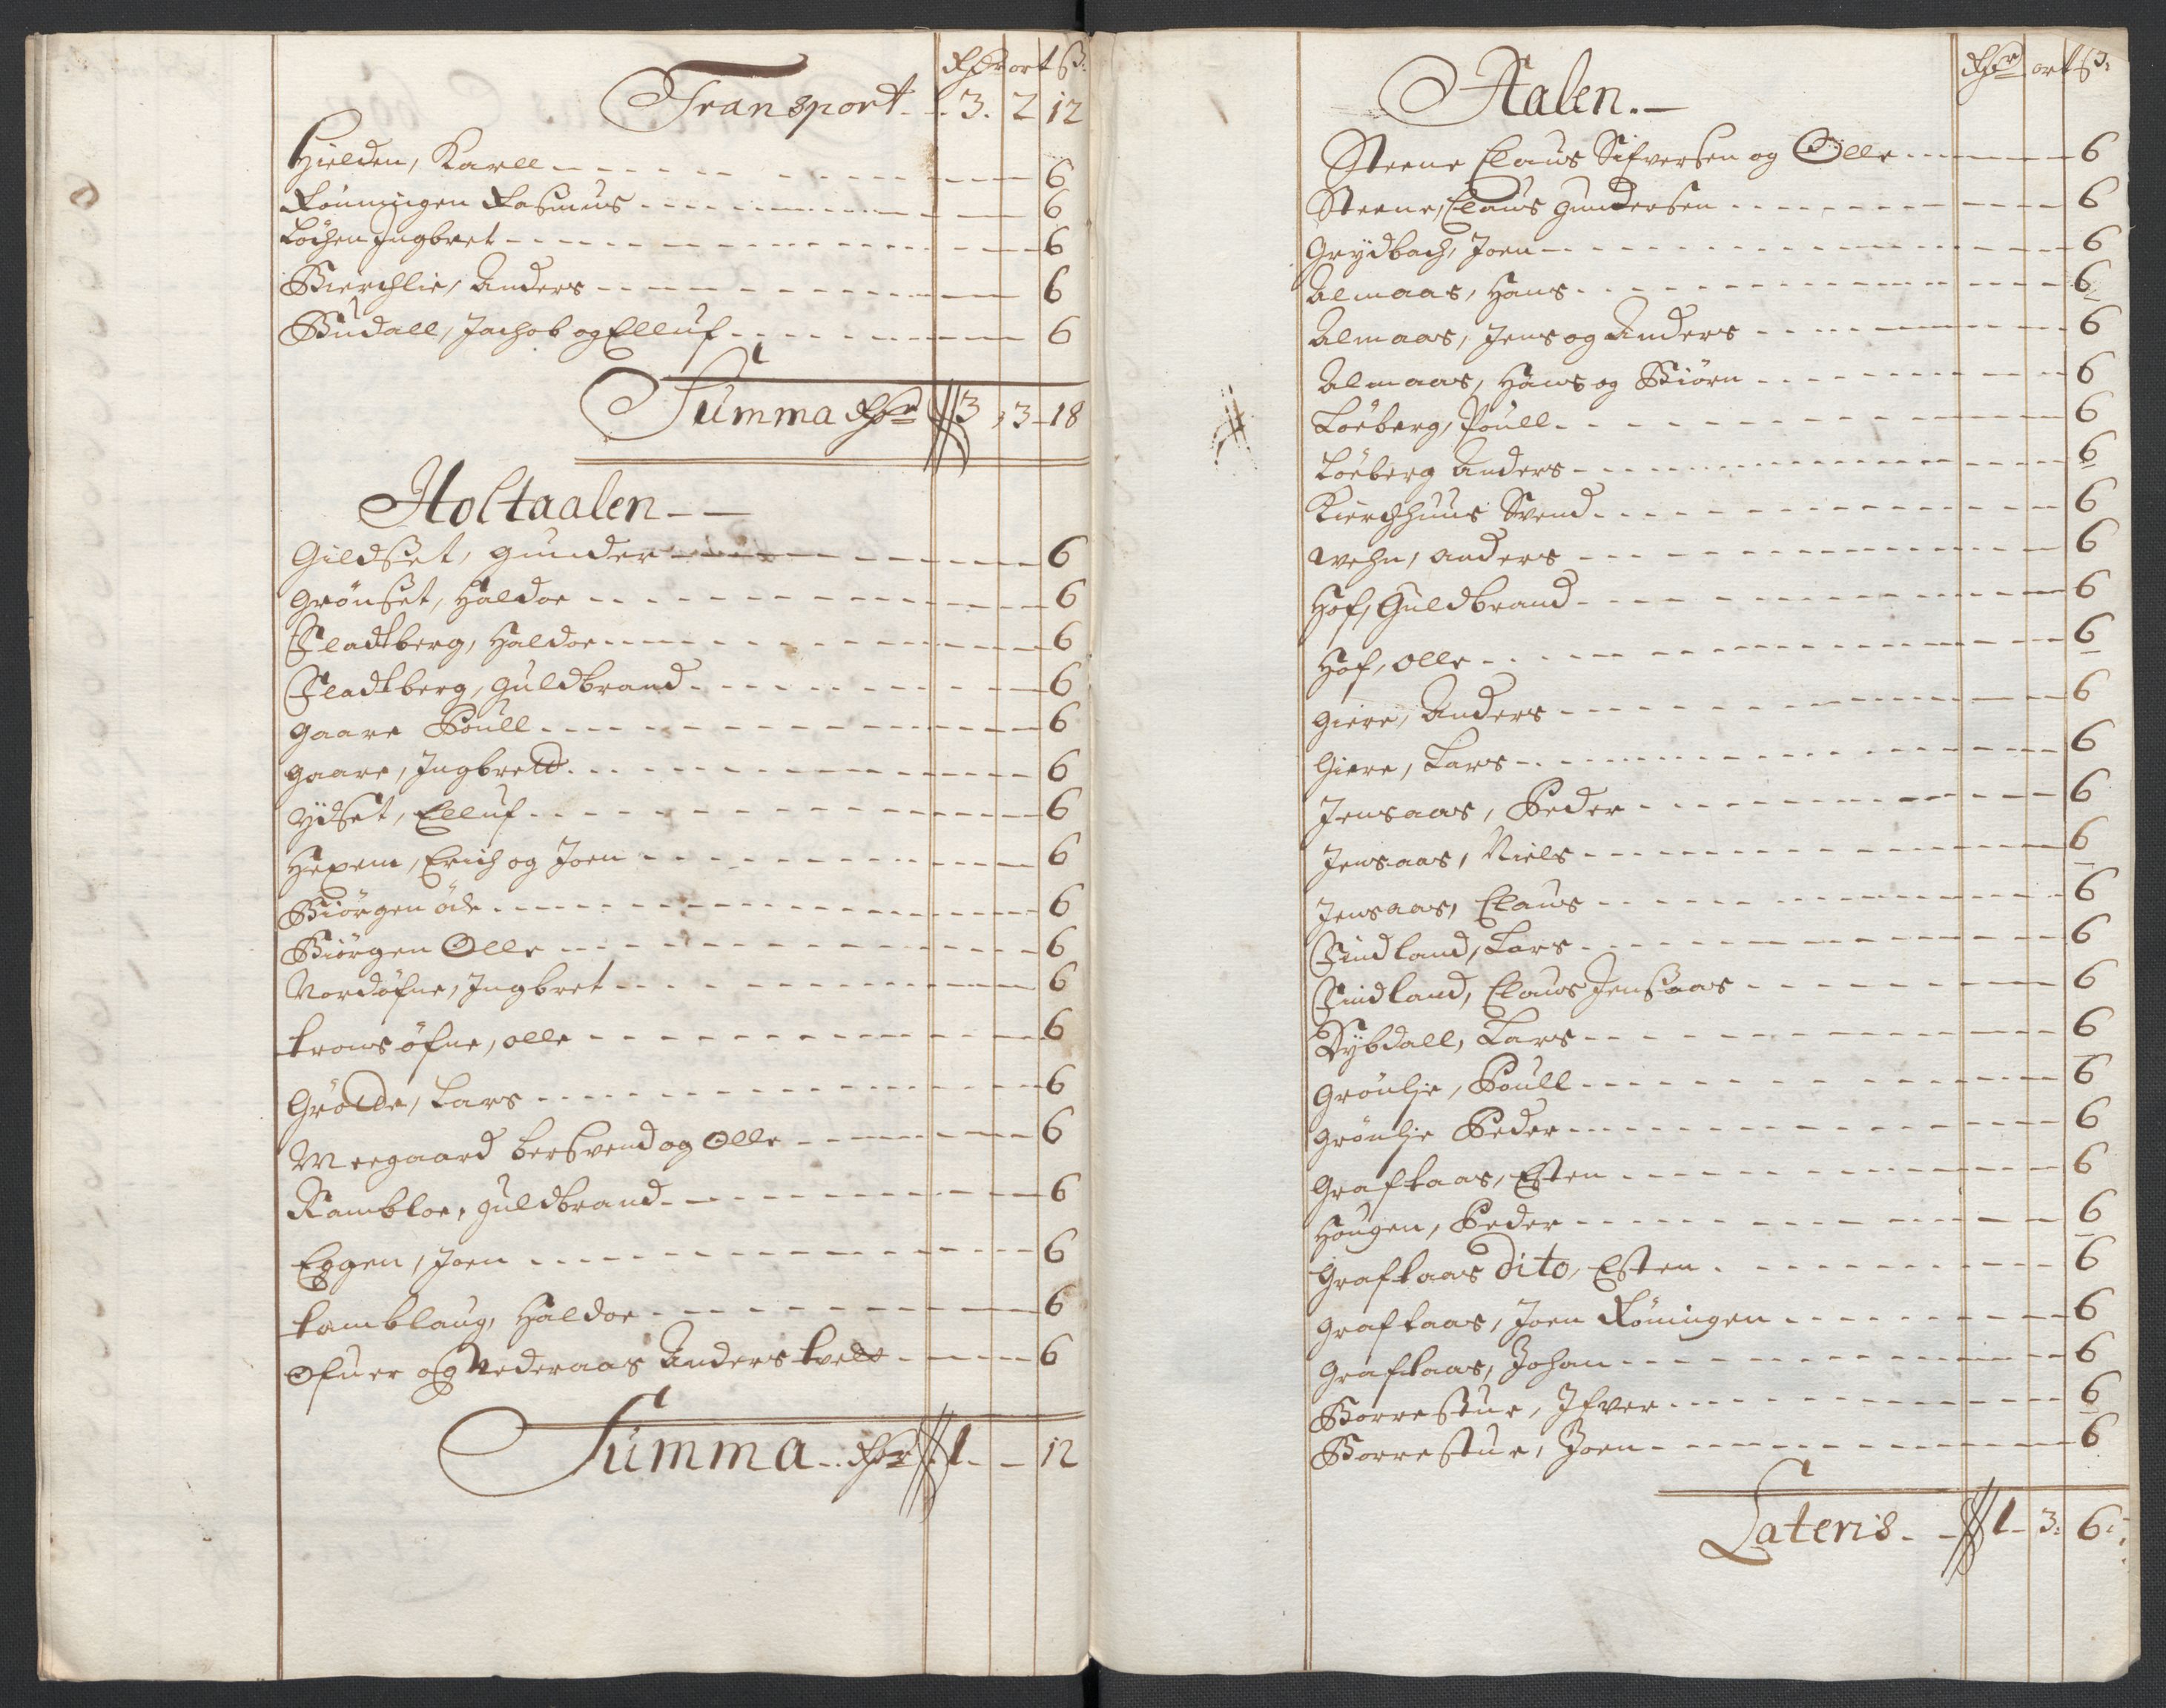 Rdr ort ß:
Transport - . 3. 2 12
Hielden, Karll - - - 6
Rönningen Rasmus - - - 6
Löchen Ingbret - - - 6
Bierchlie, Anders - - - 6
Budall, Jachob og Elluf - - - 6
Summa Rdr 3 , 3 - 18
Holtaalen - -
Gildset, Gunder - - - 6
Grönset, Haldor - - - 6
Fladtberg, Haldor - - - 6
Fladtberg, Guldbrand - - - 6
Gaare Poull - - - 6
Gaare, Ingbrett - - - 6
Ydset, Elluf - - - 6
Hexem, Erich og Joen - - - 6
Biörgen öde - - - 6
Biörgen Olle - - - 6
Nordöfne, Ingbret - - - 6
Tronsöfne, Olle - - - 6
Grötte, Lars - - - 6
Meegaard Bersvend og Olle - - - 6
Rambloe, Guldbrand - - - 6
Eggen, Joen - - - 6
Tamblaug, Haldor - - - 6
Ofuer og Nederaas Anders - - - 6
Summa . . Rdr 1 - - 12
Rdr ort ß:
Aalen . -
Steene Claus Sifversen og Olle - - - 6
Steene, Claus Gundersen - - - 6
Grydbach, Joen - - - 6
Almaas, Hans - - - 6
Almaas, Jens og Anders - - - 6
Almaas, Hans og Biörn - - - 6
Löeberg, Poull - - - 6
Löeberg Anders - - - 6
Kierchhuus Svend - - - 6
Wehn, Anders - - - 6
Hof, Guldbrand - - - 6
Hof, Olle - - - 6
Giere, Anders - - - 6
Giere, Lars - - - 6
Jensaas, Peder - - - 6
Jensaas, Niels - - - 6
Jensaas, Claus - - - 6
Findland, Lars - - - 6
Findland, Claus Jensaas - - - 6
Dybdall, Lars - - - 6
Grönlie, Poull - - - 6
Grönlie Peder - - - 6
Graftaas, Esten - - - 6
Haugen, Peder - - - 6
Graftaas dito, Esten - - - 6
Graftaas, Joen Röningen - - - 6
Graftaas, Johan - - - 6
Borrestue, Ifver - - - 6
Borrestue, Joen - - - 6
Lateris - - 1 - 3: 6: